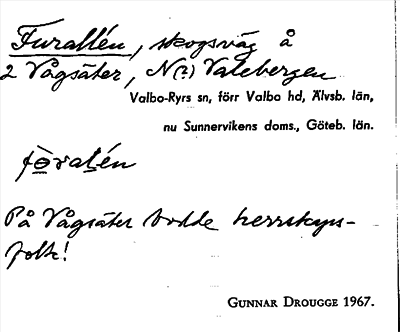 Furallén, skogsväg å
2 Vågsäter, N(?) Valebergen
Valbo-Ryrs sn, förr Valbo hd, Älvsb. län,
nu Sunnervikens doms., Göteb. län.
fo̳ralén
På Vågsäter bodde herrskaps-
folk!
GUNNAR DROUGGE 1967.